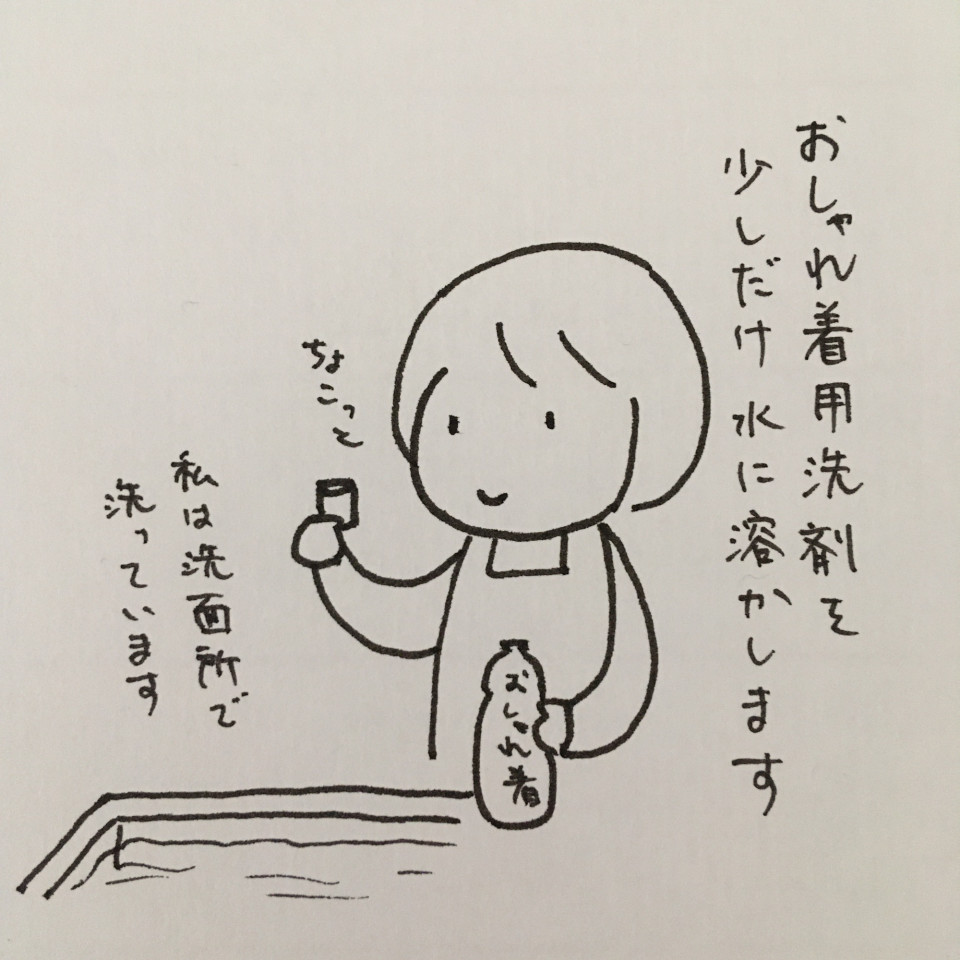 おしゃれ着用洗剤を
少しだけ水に溶かします
ちょ
こっと
私は洗面所で
洗っています
おしゃれ着